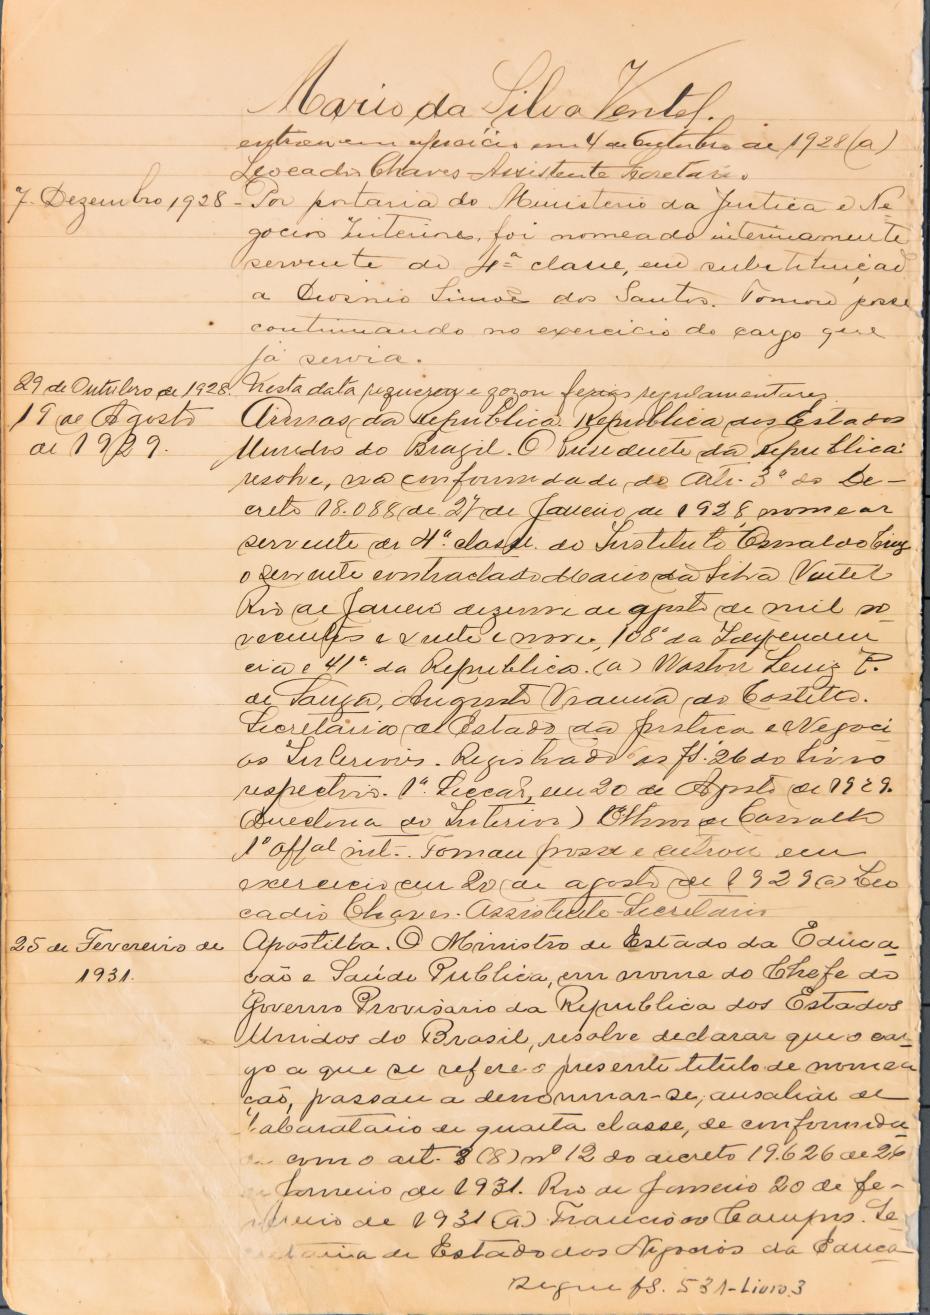 Mario da Silva Ventel.
entrou em exercicio em 4 de Outubro de 1928 (a)
Leocadio Chaves - Assistente Secretario.
7 Dezembro 1928 - Por portaria do Ministerio da Justica e Ne-
gocios Interiores, foi nomeado interinamente
servente de 4ª classe, em substituição
a Dionisio Simoẽ dos Santos. Tomou posse
continuando no exercicio do cargo que
já servia.
29 de Outubro de 1928. Nesta data requereu e gozou ferias regulamentares.
19 de Agosto Armas da Republica. Republica dos Estados
de 1929. Unidos do Brazil. O Presidente da Republica
resolve, na conformidade do Art. 3º do De-
creto 18.088 de 27 de Janeiro de 1928 nomear
servente de 4ª classe do Instituto Oswaldo Cruz
o servente contractado Mario da Silva Ventel
Rio de Janeiro dezenove de agosto de mil no
vecentos e vinte e nove, 108º da Independen
cia e 41º da Republica. (a) Waston Luiz P.
de Souza, Augusto Vianna do Castello.
Secretario de Estado da Justica e Negoci
os Interiores. Registrado as fs. 26 do Livro
respectivo. 1ª Seccaõ, em 20 de Agosto de 1929.
(Directoria do Interior) Othon de Carvalho
1º Offal int. Tomou posse e entrou em
exercicio em 20 de agosto de 1929 (a) Leo
cadio Chaves. Assistente-Secretario
25 de Fevereiro de Apostilha. O Ministro de Estado da Educa
1931. cão e Saúde Publica, em nome do Chefe do
Governo Provisorio da Republica dos Estados
Unidos do Brasil, resolve declarar que o car-
go a que se refere o presente titulo de nomea
cão, passou a denominar-se, auxiliar de
laboratorio de quarta classe, de conformida
com o art. 8 (8) nº 12 do decreto 19.626 de 26
Janeiro de 1931. Rio de Janeiro 20 de fe-
vereiro de 1931 (a) Francisco Campos. Se
cretaria de Estado dos Negocios da Educa
Segue fs. 531 - Livro 3